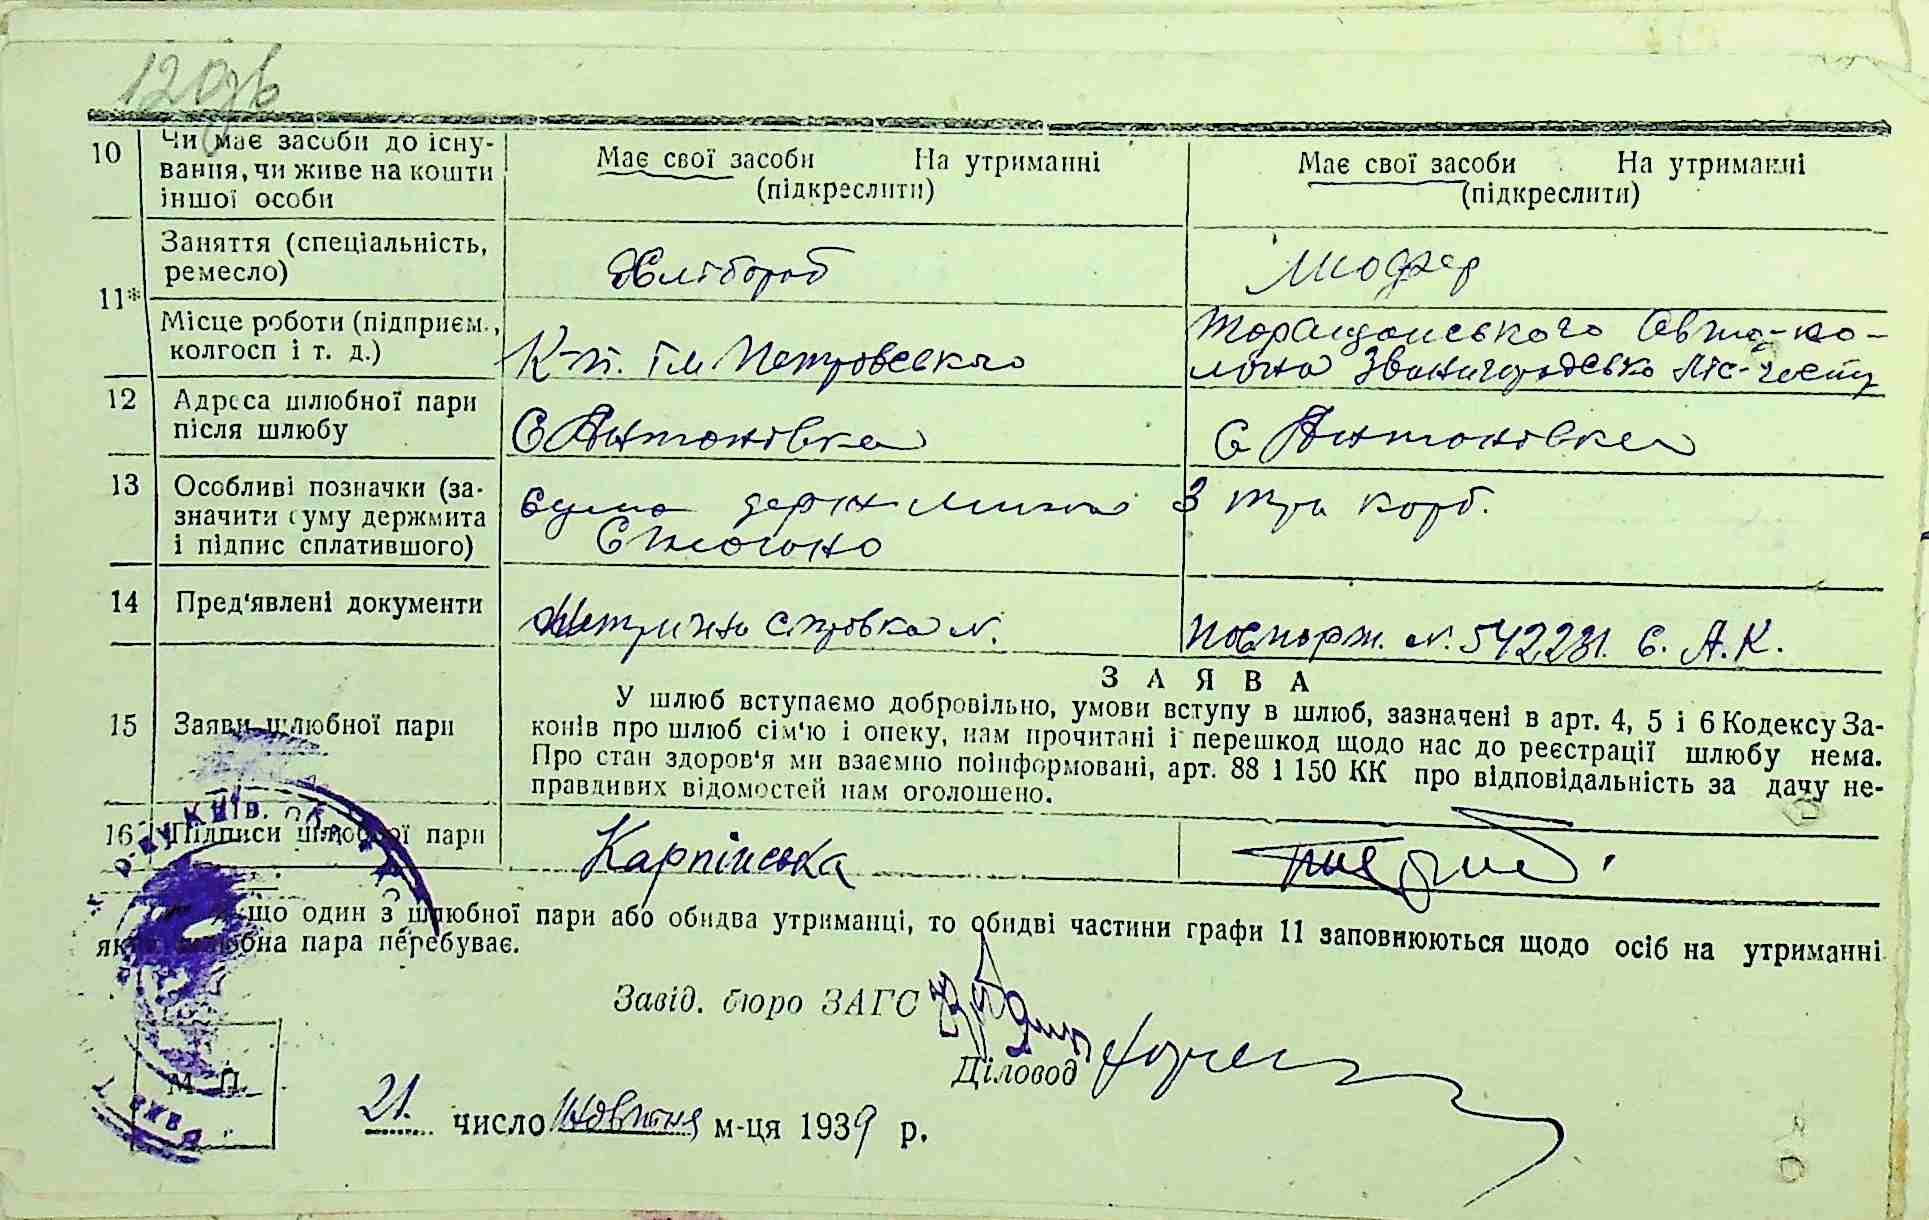 120зв
10
Чи має засоби до існу-
вання, чи живе на кошти
іншої особи
Має свої засоби На утриманні
(підкреслити)
Має свої засоби На утриманні
(підкреслити)
11*
Заняття (спеціальність,
ремесло)
Хлібороб
Шофер
Місце роботи (підприєм.,
колгосп і т. д.)
К-п. ім Петровського
Таращанського Авто-ко-
лона Звенигородсько Ліс-
12
Адреса шлюбної пари
після шлюбу
С Антонівка
С Антонівка
13
Особливі позначки (за-
значити суму держмита
і підпис сплатившого)
Сума держ мита 3 три карб.
Стягнено
14
Пред'явлені документи
Метрична справка N.
Паспорт. N. 542281. С. А.К.
15
Заяви шлюбної пари
ЗАЯВА
У шлюб вступаємо добровільно, умови вступу в шлюб, зазначені в арт. 4, 5 і 6 Кодексу За-
конів про шлюб сім'ю і опеку, нам прочитані і перешкод щодо нас до реєстрації шлюбу нема.
Про стан здоров'я ми взаємно поінформовані, арт. 88 1 150 КК про відповідальність за дачу не-
правдивих відомостей нам оголошено.
16
Підписи шлюбної пари
Карпінська
що один з шлюбної пари або обидва утриманці, то обидві частини графи 11 заповнюються щодо осіб на утриманні
пара перебуває.
Завід. бюро ЗАГС
Діловод
М. П.
21. число Жовтня м-ця 1939 р.
КИЇВ.